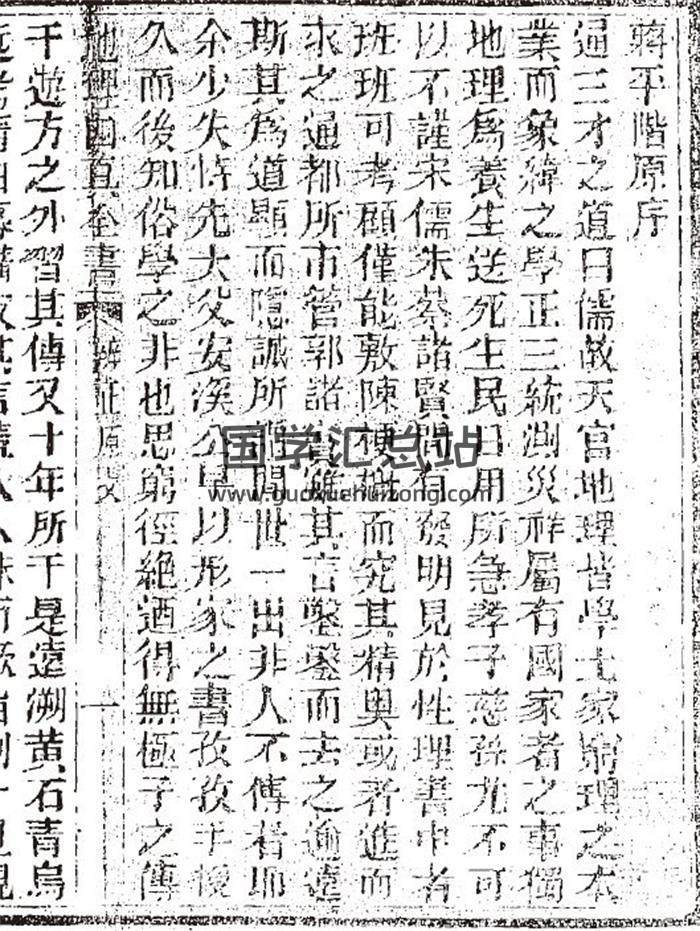 蔣平階原序
通三才之道曰儒故天官地理皆學士家窮理之本
業而象緯之學正三統測災祥屬有國家者之事獨
地理爲養生送死生民日用所急孝子慈孫尤不可
以不謹宋儒朱蔡諸賢間有發明見於性理書中者
班班可考顧僅能敷陳梗概而究其精奧或者進而
求之通都所市管郭諸書雖其言鑿鑿而去之逾遠
斯其爲道顯而隱誠所謂間世一出非人不傳者耶
余少失恃先大父安溪公早以形家之書孜孜手授
久而後知俗學之非也思窮徑絶迺得無極子之傳
地理
直
全書
辨正原
一
于遊方之外習其傳又十年所于是遠溯黃石青烏
国学汇总站
www.guoxuehuizong.com